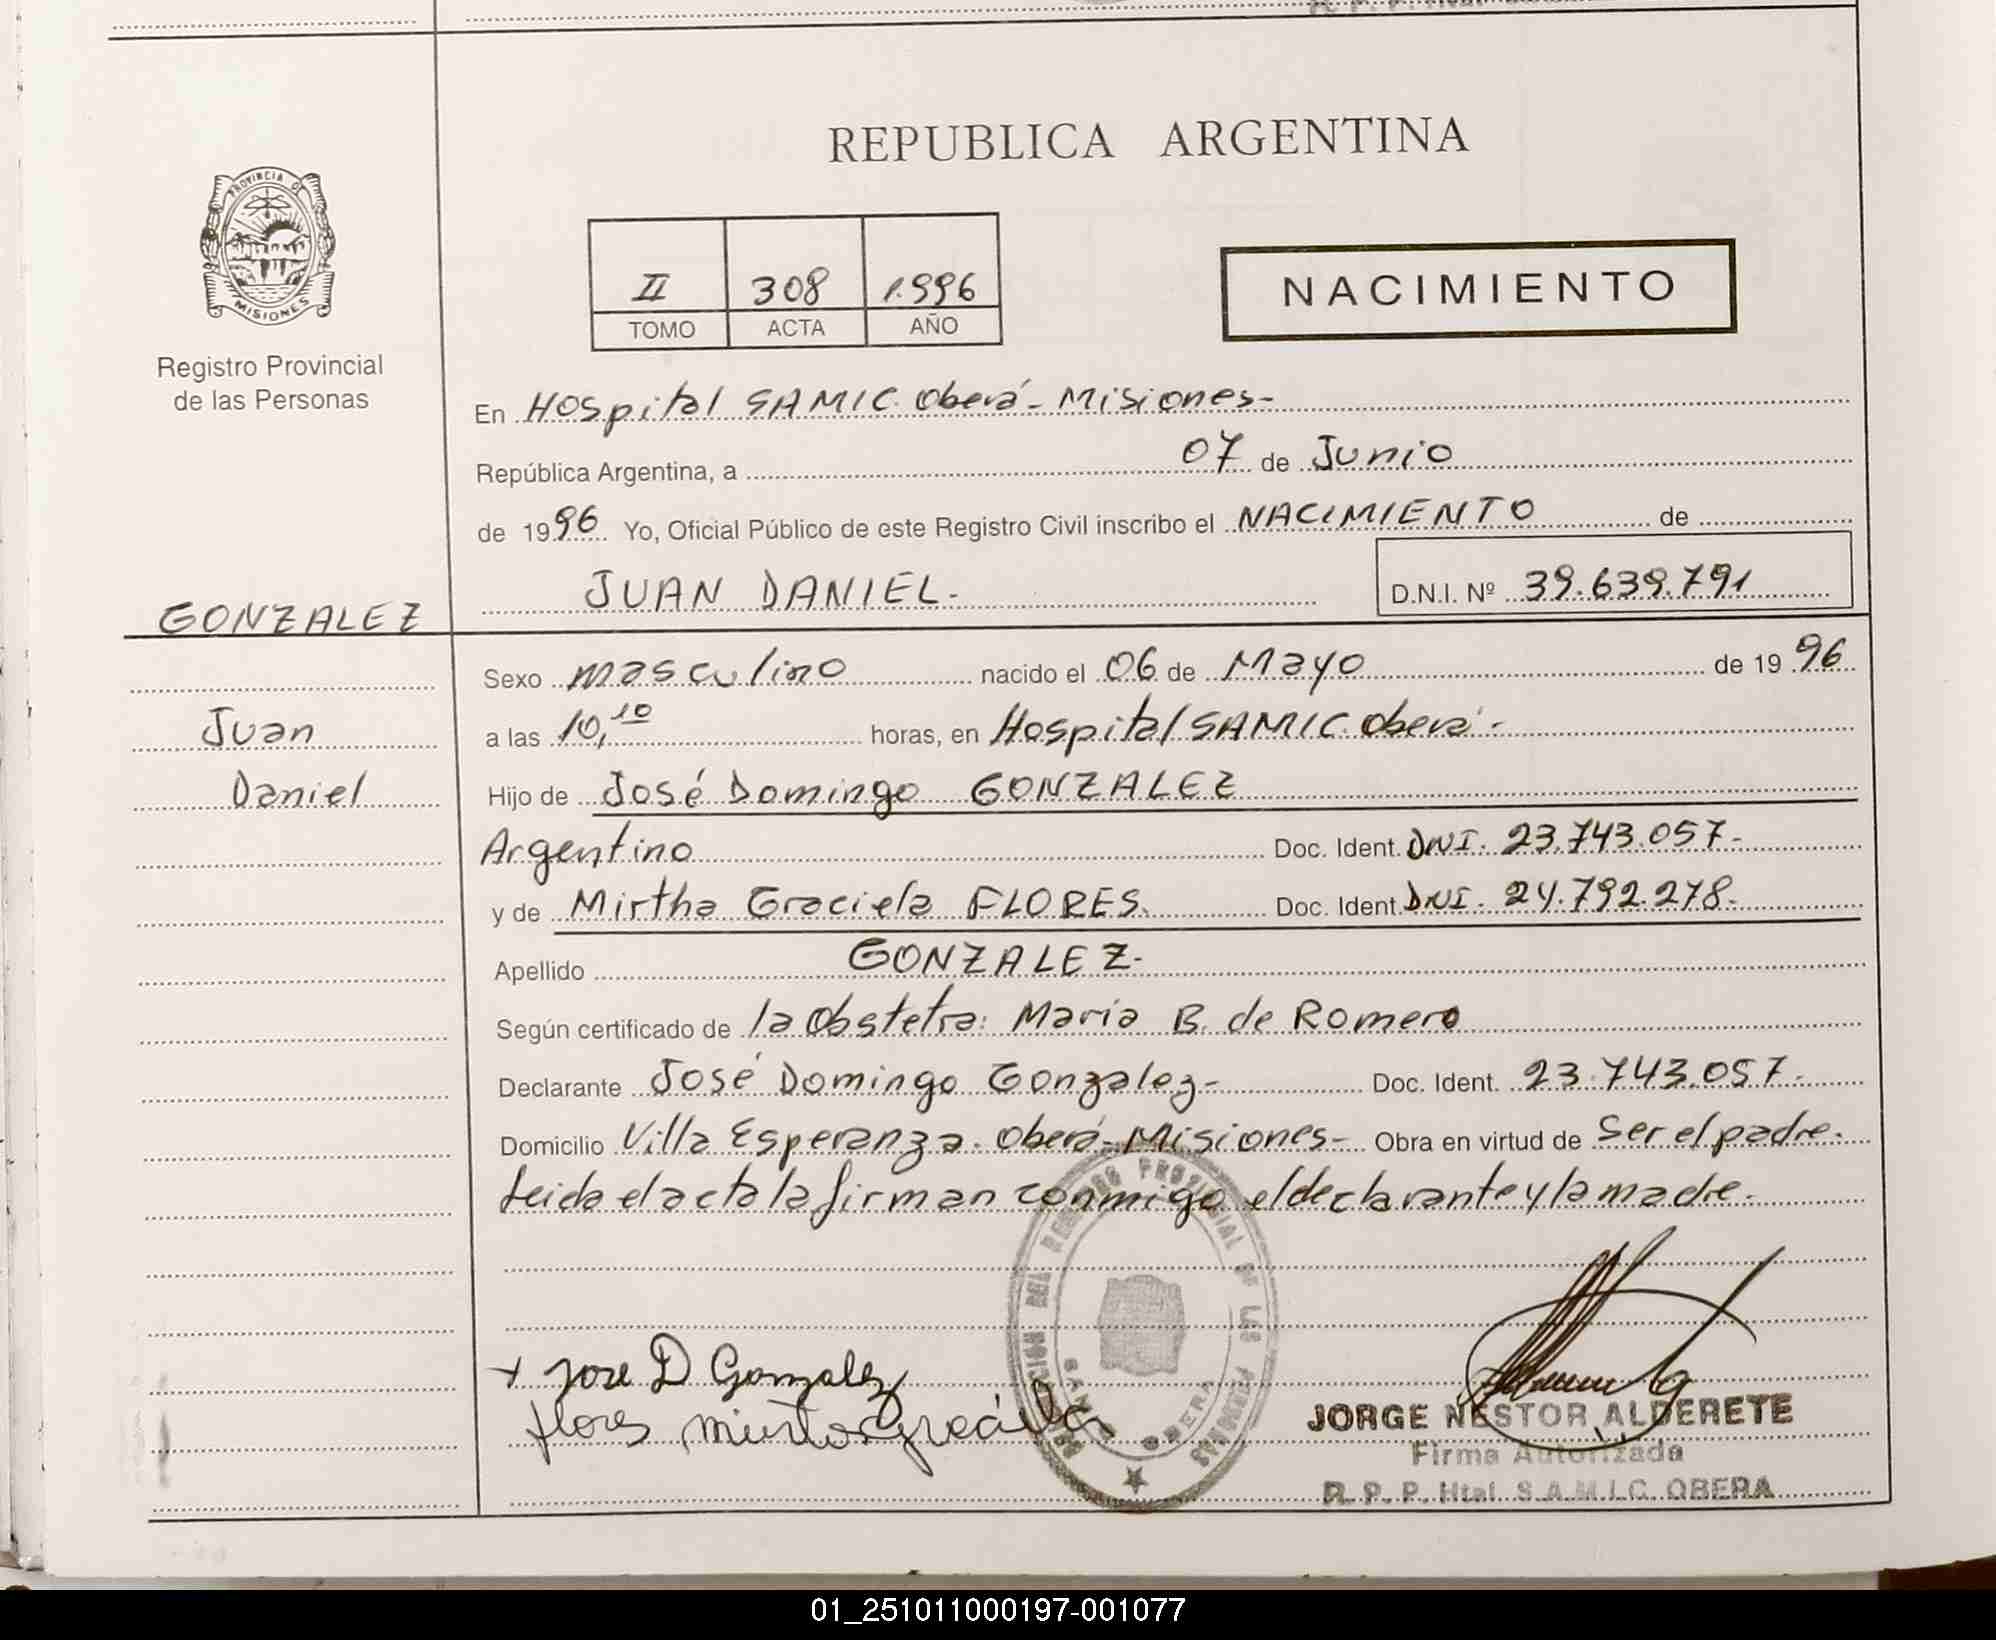 REPUBLICA ARGENTINA
PROVINCIA DE
MISIONES
Registro Provincial
de las Personas
II 308 1.996
TOMO ACTA AÑO
NACIMIENTO
En Hospital SAMIC. Oberá - Misiones-
República Argentina, a 07 de Junio
de 1996 Yo, Oficial Público de este Registro Civil inscribo el NACIMIENTO de
JUAN DANIEL- D.N.I. Nº 39.639.791
GONZALEZ
Juan
Daniel
Sexo masculino nacido el 06 de Mayo de 1996
a las 10,10 horas, en Hospital SAMIC. Oberá-
Hijo de José Domingo GONZALEZ
Argentino Doc. Ident. DNI. 23.743.057-
y de Mirtha Graciela FLORES. Doc. Ident. DNI. 24.792.278-
Apellido GONZALEZ-
Según certificado de la Obstetra: Maria B. de Romero
Declarante José Domingo Gonzalez- Doc. Ident. 23.743.057-
Domicilio Villa Esperanza. Oberá- Misiones- Obra en virtud de ser el padre.
Leida el acta la firman conmigo el declarante y la madre.
+ Jose D Gonzalez
flores mirta graciela
JORGE NESTOR ALDERETE
Firma Autorizada
R. P. P. Htal. S.A.M.I.C. OBERA
DEL REGISTRO PROVINCIAL DE LAS PERSONAS
OBERA
01_251011000197-001077